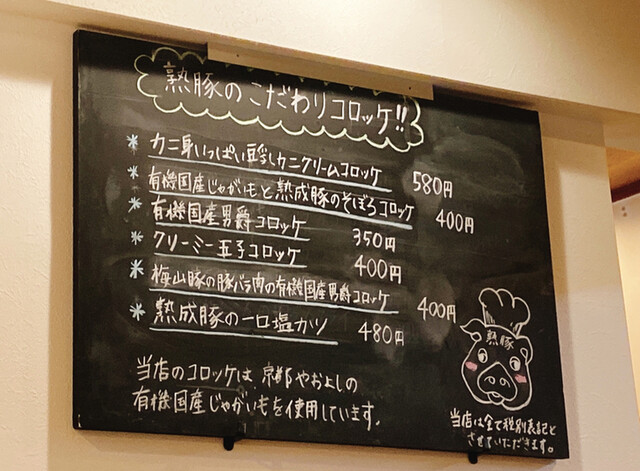 熟豚のこだわりコロッケ!!
* カニ身いっぱい豆乳カニクリームコロッケ 580円
* 有機国産じゃがいもと熟成豚のそぼろコロッケ 400円
* 有機国産男爵コロッケ 350円
* クリーミー玉子コロッケ 400円
* 梅山豚の豚バラ肉の有機国産男爵コロッケ 400円
* 熟成豚の一口塩カツ 480円
当店のコロッケは、京都やおよしの
有機国産じゃがいもを使用しています。
熟豚
当店は全て税別表記と
させていただきます。